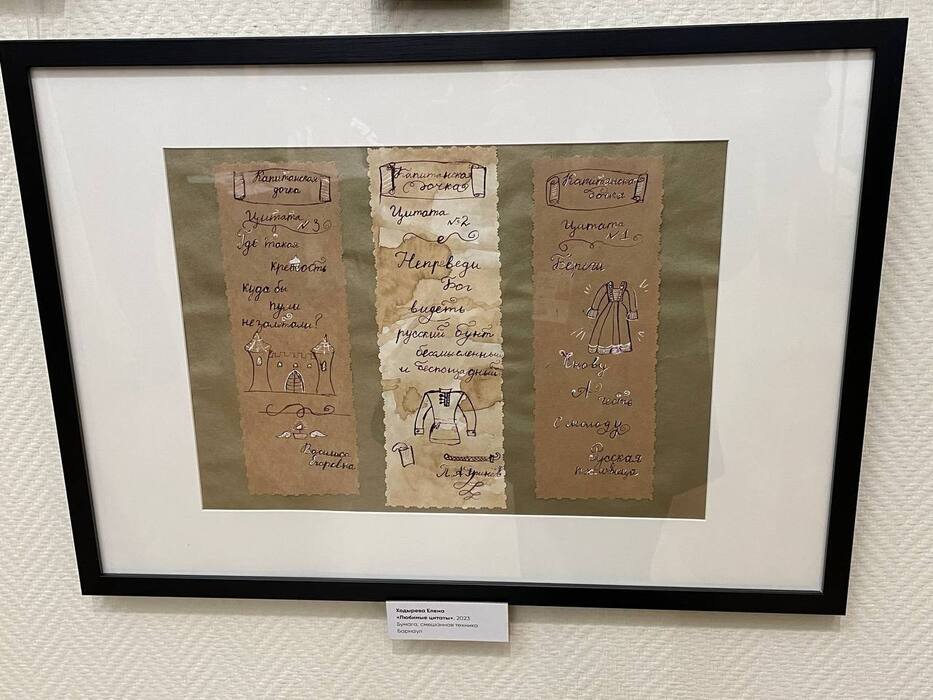 Капитанская
дочка
Цитата
№3
Где такая
крепость
куда бы
пули
незалтали?
Василиса
Егоровна
Капитанская
дочка
Цитата
№2
Непреведи
Бог
видеть
русский бунт
бесмысленный
и беспощадный
П. А. Гринёв
Капитанская
дочка
Цитата
№1
Береги
Снову
А честь
С молоду
Русская
пословица
Ходырева Елена
«Любимые цитаты», 2023
Бумага, смешанная техника
Барнаул